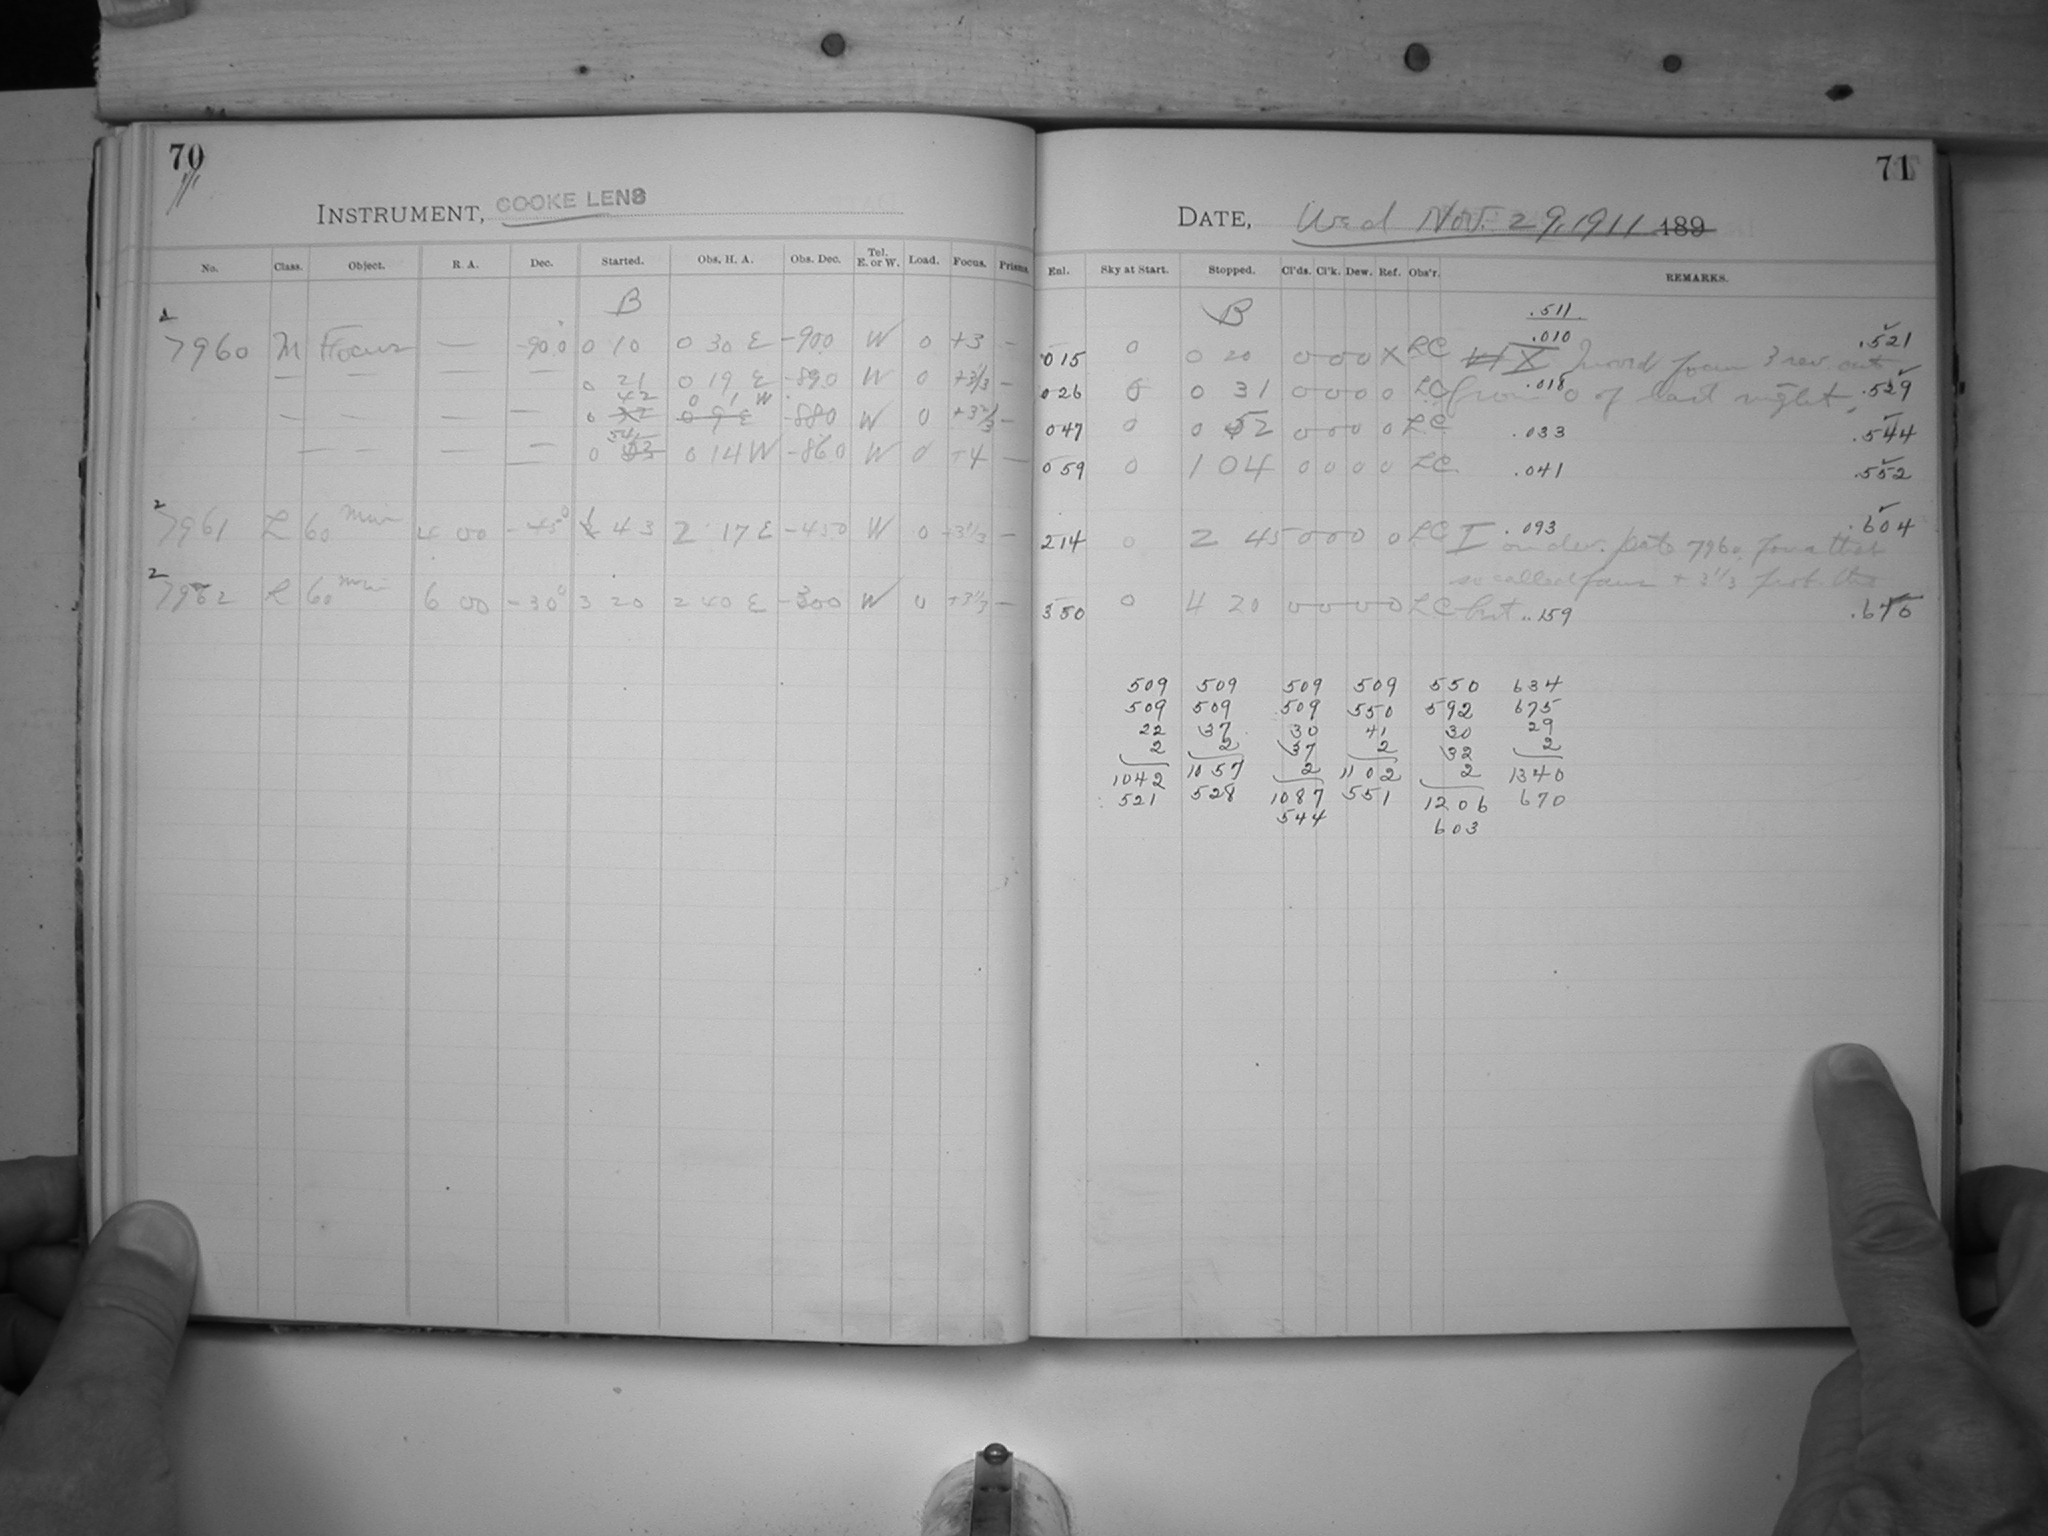 70
INSTRUMENT, COOKE LENS
No. Class. Object. R. A. Dec. Started. Obs. H. A. Obs. Dec. Tel. E. or W. Load. Focus. Prisms.
B
7960 M Focus — -90.0 0 10 0 30 E -90.0 W 0 +3 —
— — — — 0 21 0 19 E -89.0 W 0 +3 1/3 —
42 0 1 W
— — — — 0 0 9 E -88.0 W 0 +3 2/3 —
54
— — — — 0 0 14 W -86.0 W 0 +4 —
7961 L 60 min 4 00 -45° 1 43 2 17 E -45.0 W 0 +3 1/3 —
7962 L 60 min 6 00 -30° 3 20 2 40 E -30.0 W 0 +3 1/3 —
71
DATE, Wed Nov. 29, 1911 189
Enl. Sky at Start. Stopped. Cl'ds. Cl'k. Dew. Ref. Obs'r. REMARKS.
B .511
.010 .521
015 0 0 20 0 0 0 X LC X Moved focus 3 rev. out
026 0 0 31 0 0 0 0 LC from 0 of last night. .018 .529
047 0 0 52 0 0 0 0 LC .033 .544
059 0 1 04 0 0 0 0 LC .041 .552
214 0 2 45 0 0 0 0 LC I .093 .604
on dev. plate 7960 found that
so called focus + 3 1/3 prob. the
350 0 4 20 0 0 0 0 LC best .159
509 509 509 509 550 634
509 509 509 550 592 675
22 37 30 41 30 29
2 2 37 2 32 2
1042 1057 2 1102 2 1340
521 528 1087 551 1206 670
544 603